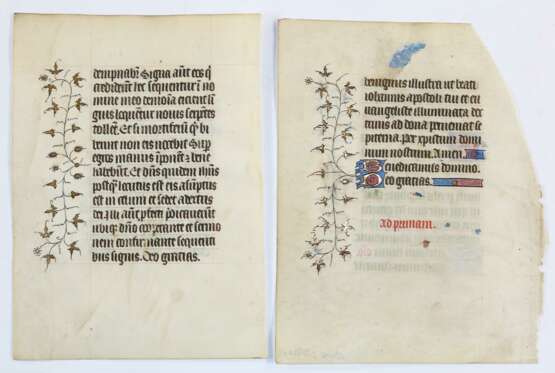 dempnabit᷑ Signa aut̄ eos q̄
crediderint hec sequentur ī no
mine meo demonia eicient lī
guis loquetur nouis serpētes
tollēt. Et si mortiferū q̇ bi
berint non eis nocebit Sup
egros manus īponēt ⁊ bene
habebūt. Et dn̄s quidem ih̄us
postq̄ locutus est eis assūptus
est in celum et sedet a dextris
dei. Illi aūt p̄fecti p̄dicauerūt
vbiq̄ dn̄o cooperante et sermo
nem confirmante sequenti
bus signis. Deo gracias.
benignus illustra ut beati
iohannis apostoli tui et eu
uangeliste illuminata doc
trinis ad dona perueniat se
piterna. Per xpistum domi
num nostrum. Amen.
Benedicamus domino.
Deo gracias.
Ad primam.